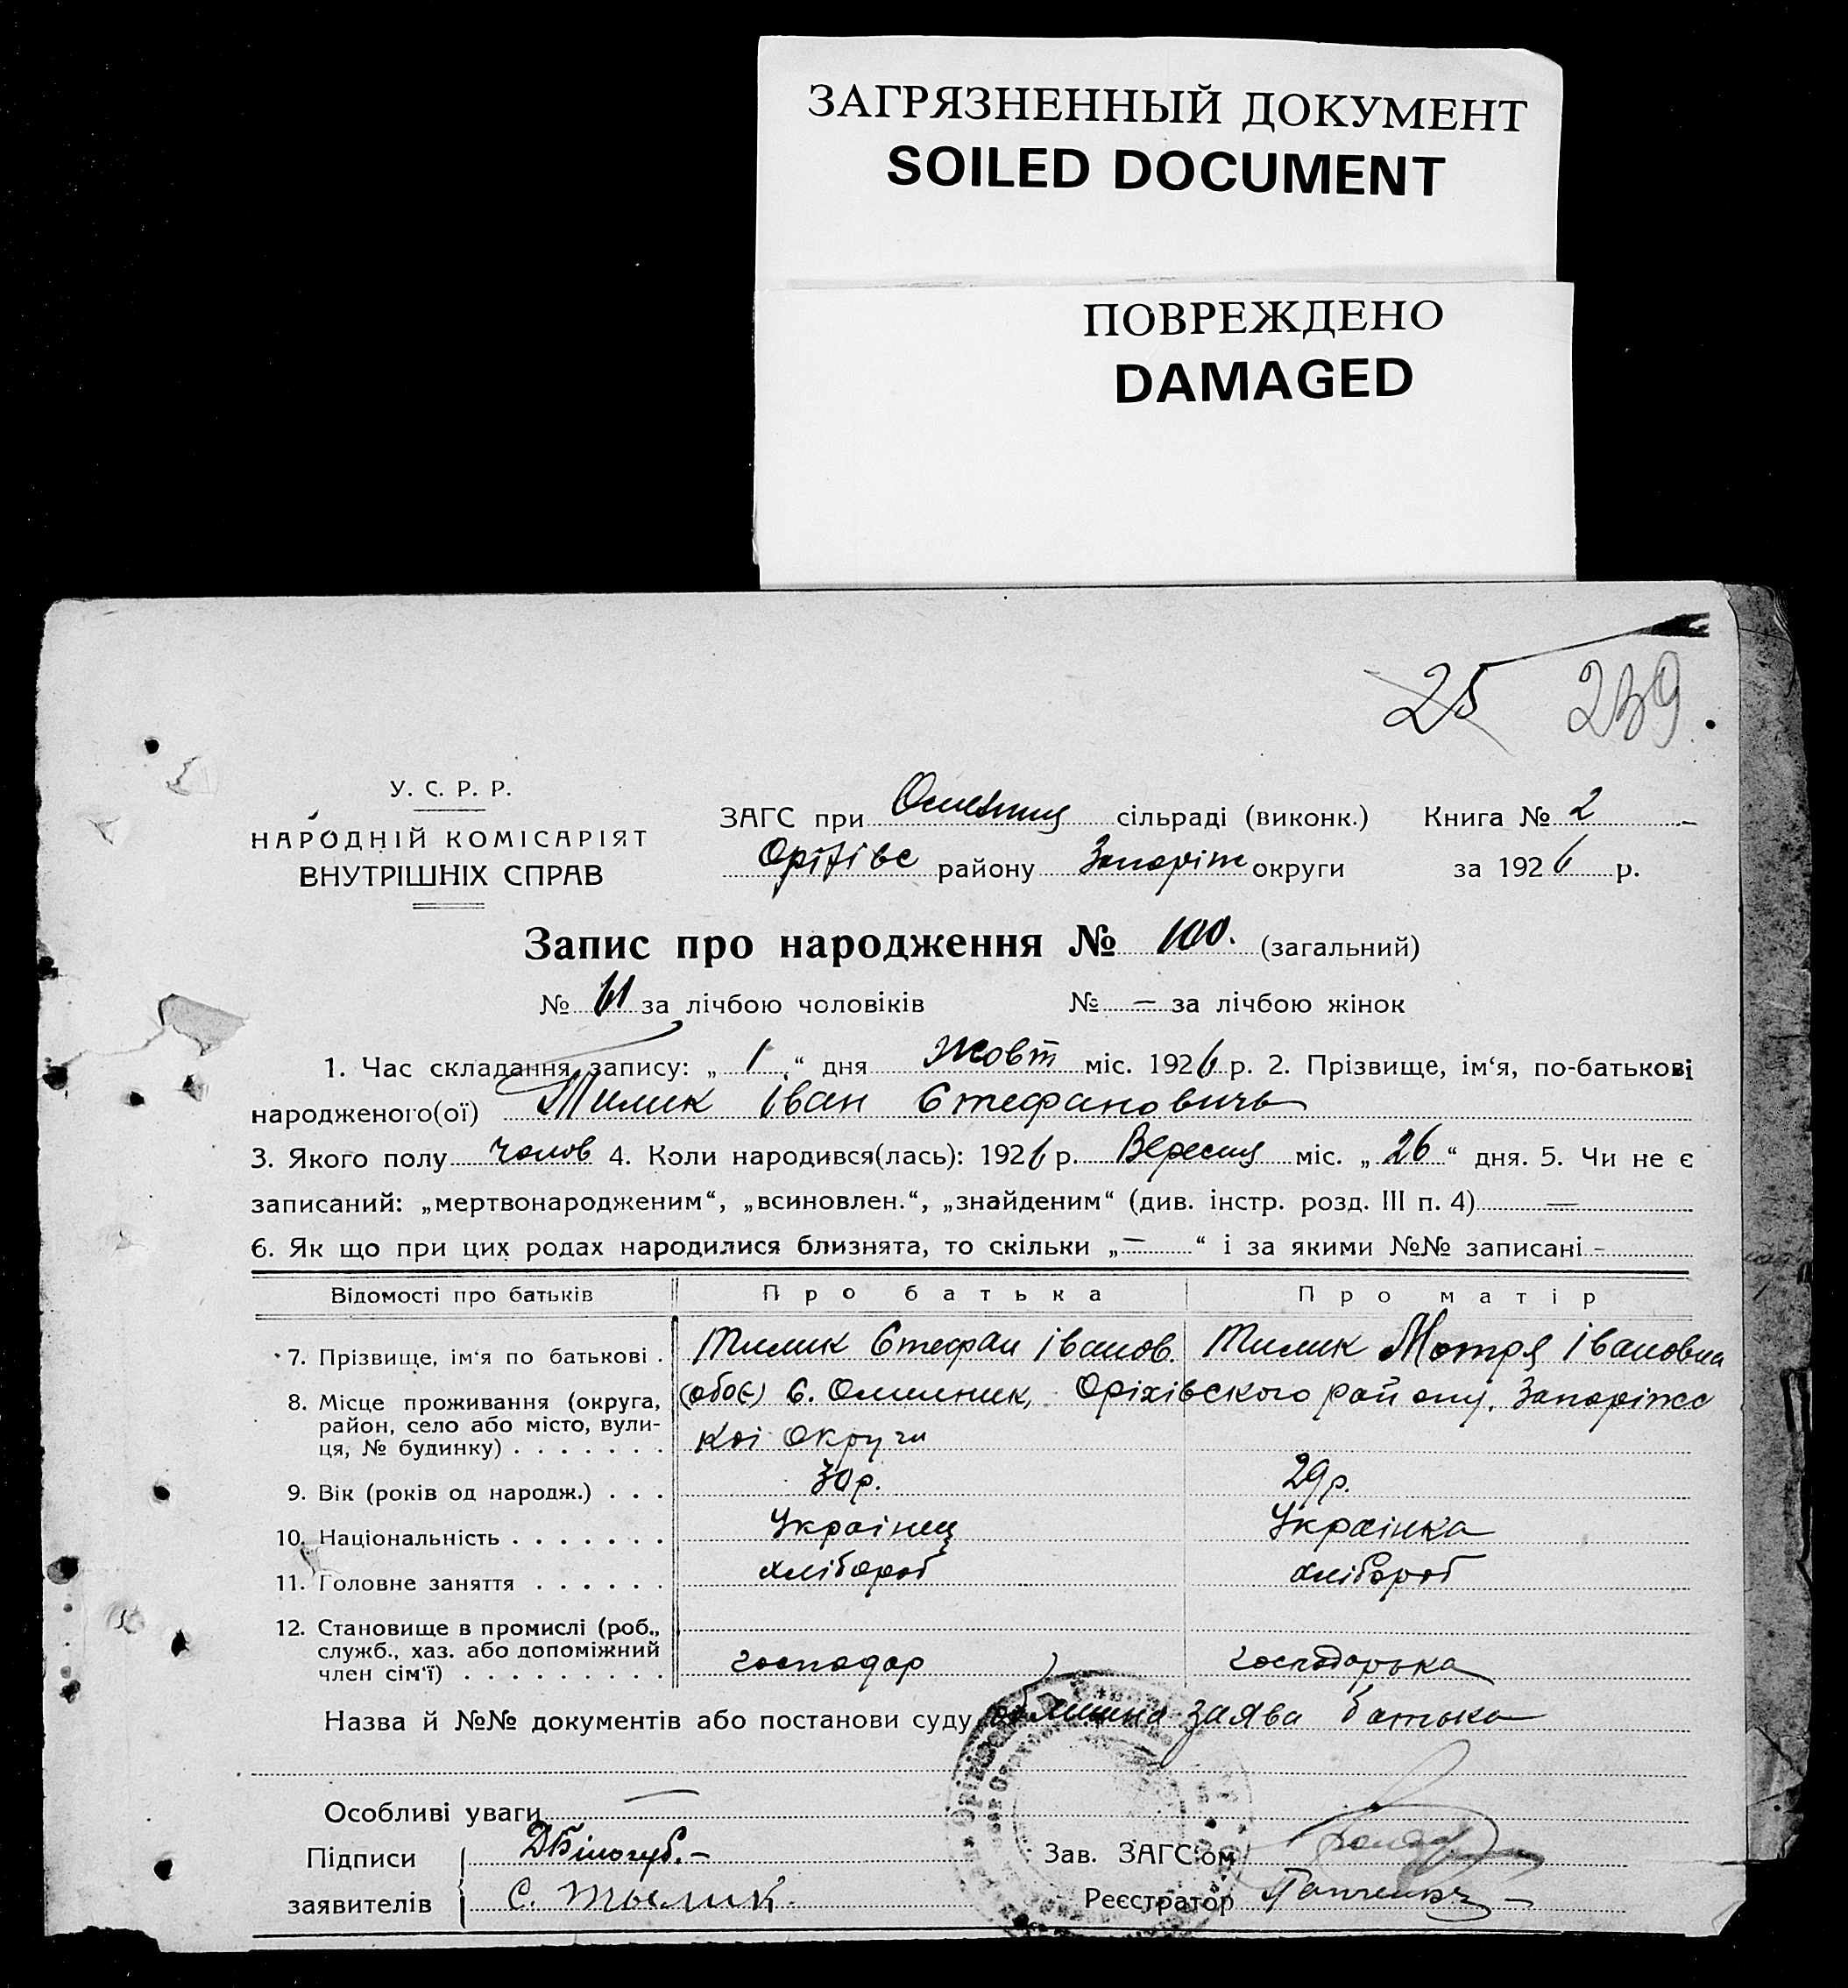 ЗАГРЯЗНЕННЫЙ ДОКУМЕНТ
SOILED DOCUMENT
ПОВРЕЖДЕНО
DAMAGED
25 239
У. С. Р. Р.
НАРОДНІЙ КОМІСАРІЯТ
ВНУТРІШНІХ СПРАВ
ЗАГС при сільраді (виконк.) Книга № 2
Оріхівс району Запоріж округи за 1926 р.
Запис про народження № 100. (загальний)
№ 61 за лічбою чоловіків № — за лічбою жінок
1. Час складання запису: „ 1 “ дня Жовт міс. 1926 р. 2. Прізвище, ім‘я, по-батькові
народженого(ої) Тилик Іван Стефановичь
3. Якого полу чолов 4. Коли народився(лась): 1926 р. Вересня міс. „ 26 “ дня. 5. Чи не є
записаний: „мертвонародженим“, „всиновлен.“, „знайденим“ (див. інстр. розд. III п. 4) —
6. Як що при цих родах народилися близнята, то скільки „ — “ і за якими №№ записані -
Відомості про батьків Про батька Про матір
7. Прізвище, ім‘я по батькові . Тилик Стефан Іванов. Тилик Мотря Івановна
8. Місце проживання (округа, район, село або місто, вулиця, № будинку) . . . . . . . (обоє) с. Омельник, Оріхівского району, Запоріжс
кої Округи
9. Вік (років од народж.) . . . 30 р. 29 р.
10. Національність . . . . . . . Українец Українка
11. Головне заняття . . . . . . хлібороб хлібороб
12. Становище в промислі (роб.,
служб., хаз. або допоміжний
член сім‘ї) . . . . . . . . . господар господарька
Назва й №№ документів або постанови суду заява батька
Особливі уваги —
Підписи Д Білогуб. — Зав. ЗАГС‘ом
заявителів С. Тылик. Реєстратор —